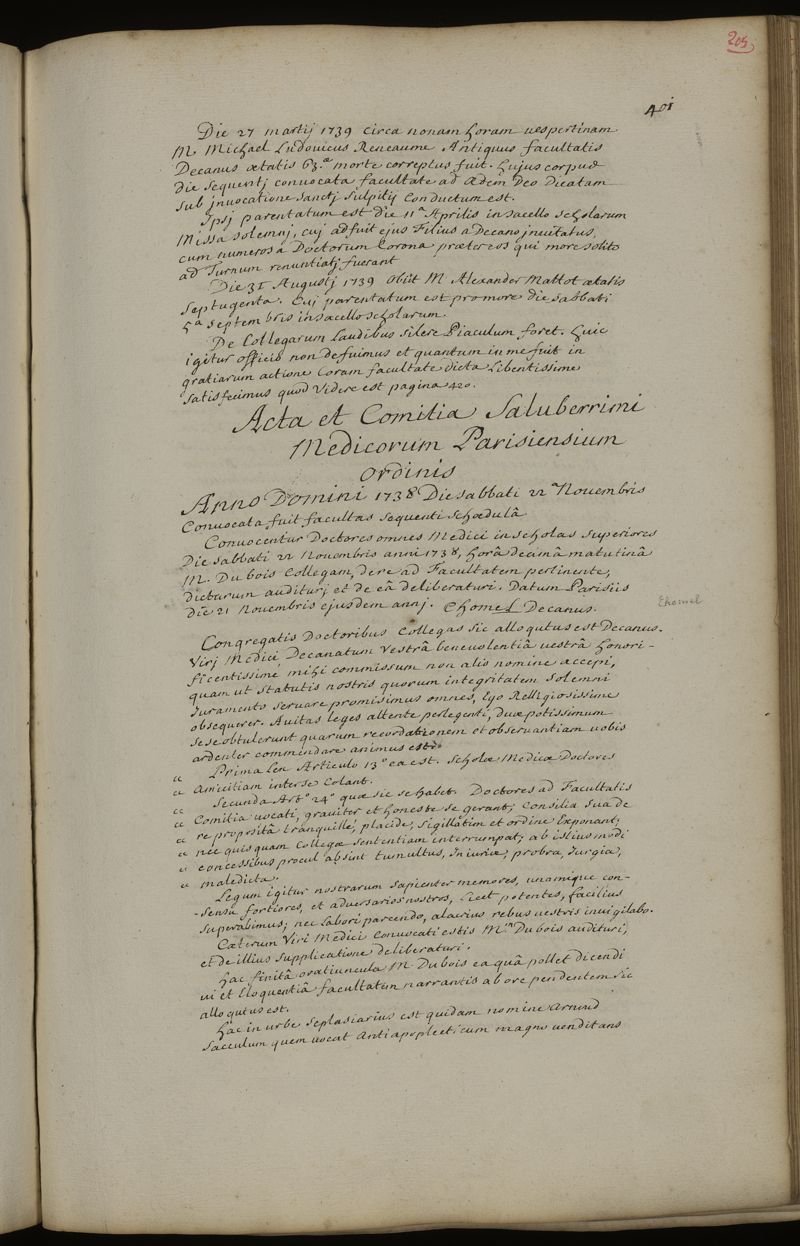 205
401
Die 27 martij 1739 circa nonam horam vespertinam
M. Michael Ludovicus Reneaume Antiquus facultatis
Decanus ætatis 63.ª morte correptus fuit. hujus corpus
die sequentj convocata facultate ad Ædem Deo Dicatam
sub jnvocatione Sanctj Sulpitij Conductum est.
Ipsj parentatum est die 11ª Aprilis in sacello scholarum
Missa solemnj, cuj adfuit ejus Filius a Decano jnvitatus,
cum numerosâ Doctorum Corona præter eos qui more solito
ad Turnum renuntiatj fuerant
Die 31 Augustj 1739 Obiit M Alexander Mattot ætatis
septugenta. Cuj parentatum est pro more die sabbati
5ª septembris in sacello scholarum.
De Collegarum Laudibus silere Piaculum foret. huic
igitur officio non defuimus et quantum in me fuit in
gratiarum actione Coram facultate dicta Libentissime
satisfecimus quod Videre est pagina 420.
Acta et Comitia Saluberrimi
Medicorum Parisiensium
ordinis
Anno Domini 1738 Die sabbati 22ª Novembris
Convocata fuit facultas sequenti schædulâ
Convocentur Doctores omnes Medici in scholas superiores
Die sabbati 22 Novembris anni 1738, horâ decimâ matutinâ
M. Dubois Collegam, de re ad Facultatem pertinente,
dicturum audituri et de eâ deliberaturi. Datum Parisiis
die 21 Novembris ejusdem annj. Chomel Decanus.
Chomel
Congregatis Doctoribus Collegas sic alloqutus est Decanus.
Virj Medici, Decanatum Vestrâ benevolentiâ vestrâ honori-
ficentissime mihi commissum non alio nomine accepi,
quam ut statutis nostris quorum integritatem solemni
Juramento servare promisimus omnes, Ego Relligiosissime
obsequerer. Avitas leges attente perlegenti, duæ potissimum
sese obtulerunt quarum recordationem et observantiam vobis
ardenter commendare animus est.
Prima Seu Articulo 13º ea est. Scholæ Medicæ Doctores
“ Amicitiam inter se Colant.
“ Secunda Artº 24º quæ sic se habet. Doctores ad Facultatis
“ Comitia vocati, graviter et honeste se gerant; Consilia sua de
“ re propositâ tranquillé, placide, sigillatim et ordine Exponant;
“ nec quisquam Collegæ sententiam interrumpat; ab istius modi
“ concessibus procul absint tumultus, Injuriæ, probra, Jurgia,
“ maledicta.
Legum igitur nostrarum sapienter memores, unanimique con-
-sensu fortiores, et adversarios nostros, licet potentes, facilius
superabimus; nec Labori parcendo, alacrius rebus vestris invigilabo.
Cæterum Viri Medici Convocati estis M.um Dubois audituri,
et de illius supplicatione deliberaturi.
hac finitâ oratiuncula M. Dubois ea quâ pollet dicendi
vi et Eloquentiâ facultatem narrantis ab ore pendentem sic
alloqutus est.
hac in urbe seplasiarius est quidam nomine Arnoud
sacculum quem vocat Antiapoplecticum magno venditans